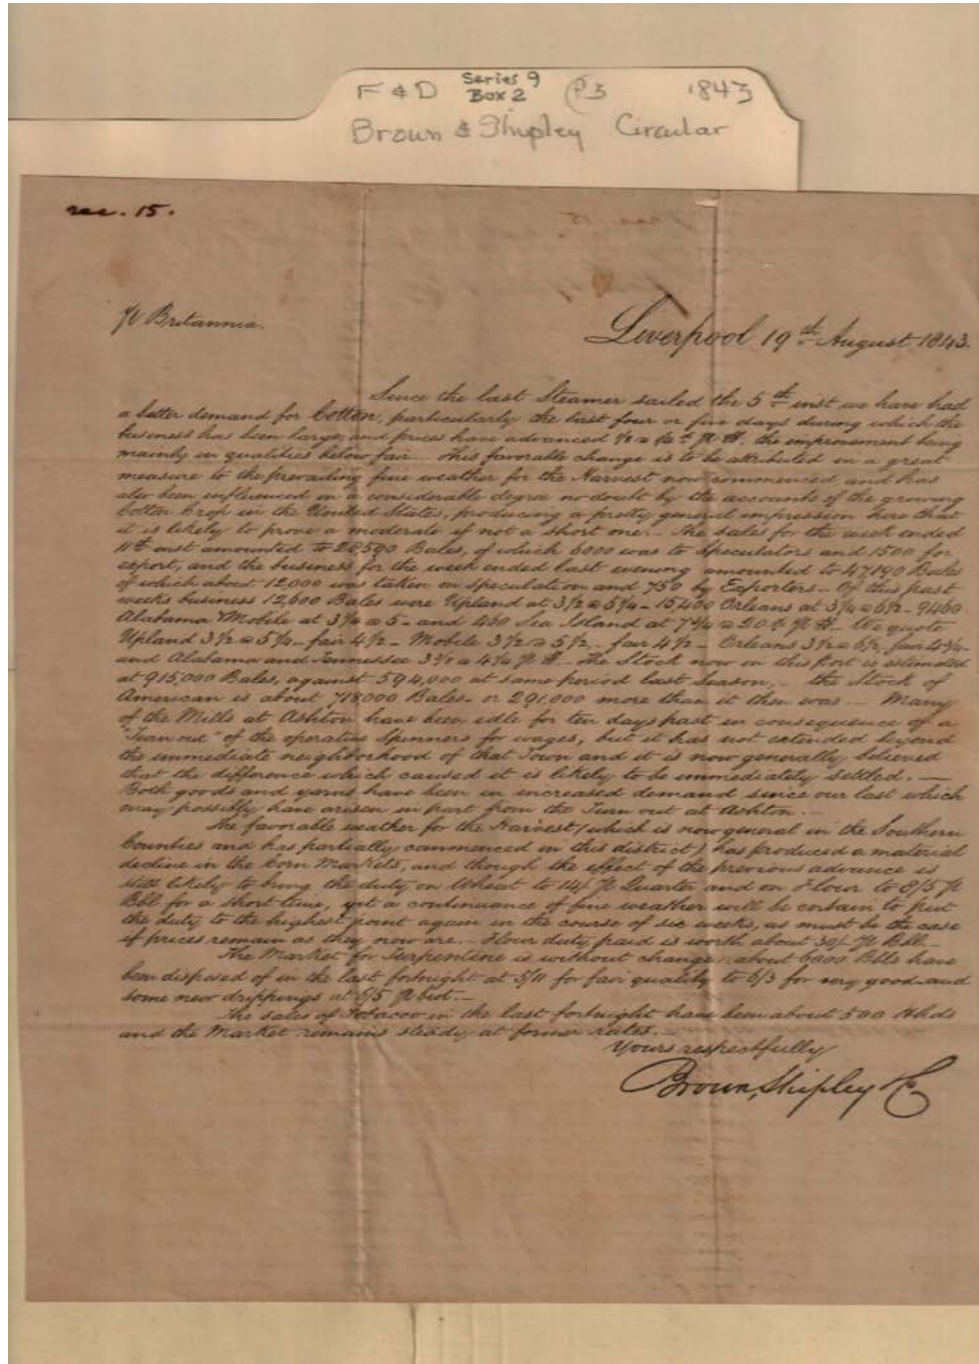 F & D Series 9 Box 2 P3 1843
Brown & Shipley Circular
rec. 15.
Pr Britannia.
Liverpool 19th August 1843.
Since the last Steamer sailed the 5th inst we have had
a better demand for Cotton, particularly the last four or five days during which the
business has been large, and prices have advanced the improvement being
mainly in qualities below fair – This favorable change is to be attributed in a great
measure to the prevailing fine weather for the Harvest now commenced and has
also been influenced in a considerable degree no doubt by the accounts of the growing
Cotton Crop in the United States, producing a pretty general impression here that
it is likely to prove a moderate if not a short one. – The sales for the week ended
11th inst amounted to Bales, of which 6000 was to Speculators and 1500 for
export, and the business for the week ended last evening amounted to 47190 Bales
of which about 12,000 was taken on speculation and 750 by Exporters – Of this past
weeks business 12,600 Bales were Upland at 3½ @ 5¾ – 15,400 Orleans at @ 6½ – 9460
Alabama & Mobile at @ 5 – and Sea Island at @ 20d Pr lb. – We quote
Upland 3½ @ 5¾ – fair 4½ – Mobile 3½ @ 5½ – fair 4½ – Orleans 3½ @ 6½, fair 4¾ –
and Alabama and Tennessee @ Pr lb – The Stock now in this Port is estimated
at 915,000 Bales, against 594,000 at same period last season, – the Stock of
American is about 718000 Bales – or 291,000 more than it then was – Many
of the Mills at Ashton have been idle for ten days past in consequence of a
"Turn out" of the operative Spinners for wages, but it has not extended beyond
the immediate neighborhood of that Town and it is now generally believed
that the difference which caused it is likely to be immediately settled. –
Both goods and yarns have been in increased demand since our last which
may possibly have arisen in part from the Turn out at Ashton. –
The favorable weather for the Harvest (which is now general in the Southern
Counties and has partially commenced in this district) has produced a material
decline in the Corn Markets, and though the effect of the previous advance is
still likely to bring the duty on Wheat to 14/ Pr Quarter and on Flour to 8/5 Pr
Bbl for a short time, yet a continuance of fine weather will be certain to put
the duty to the highest point again in the course of six weeks, as must be the case
if prices remain as they now are. – Flour duty paid is worth about 30/ Pr Bbl. –
The Market for Turpentine is without change; about 6000 Bbls have
been disposed of in the last fortnight at 5/11 for fair quality to 6/3 for very good – and
some new drippings at 6/5 Pr Cwt. –
The sales of Tobacco in the last fortnight have been about 500 Hhds
and the Market remains steady at former rates. –
Yours respectfully
Brown, Shipley & Co